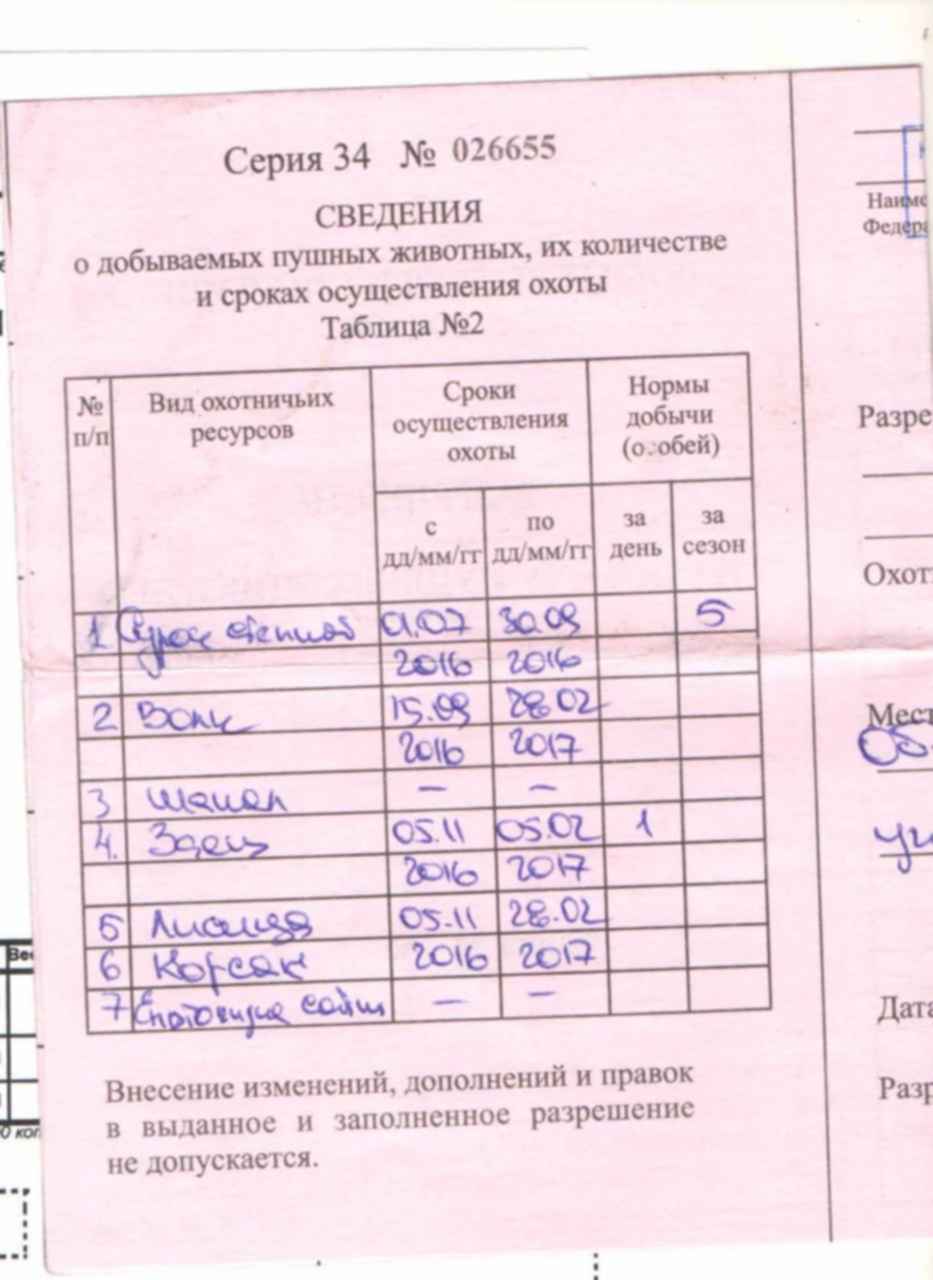 Серия 34 № 026655
СВЕДЕНИЯ
о добываемых пушных животных, их количестве
и сроках осуществления охоты
Таблица №2
№ п/п
Вид охотничьих ресурсов
Сроки осуществления охоты
Нормы добычи (особей)
с дд/мм/гг
по дд/мм/гг
за день
за сезон
1 Сурок степной 01.07 30.09 5
2016 2016
2 Волк 15.09 28.02
2016 2017
3 Шакал — —
4. Заяц 05.11 05.02 1
2016 2017
5 Лисица 05.11 28.02
6 Корсак 2016 2017
7 Енотовидная — —
Внесение изменений, дополнений и правок
в выданное и заполненное разрешение
не допускается.
Наиме
Федера
Разре
Охот
Мест
Об
Дата
Разр